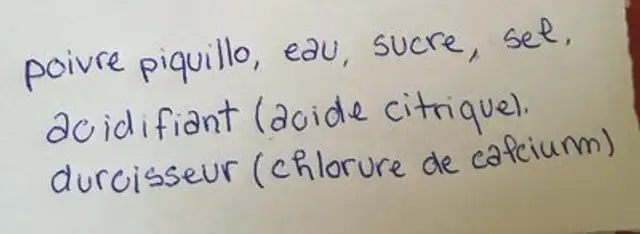 poivre piquillo, eau, sucre, sel,
acidifiant (acide citrique).
durcisseur (chlorure de calcium)